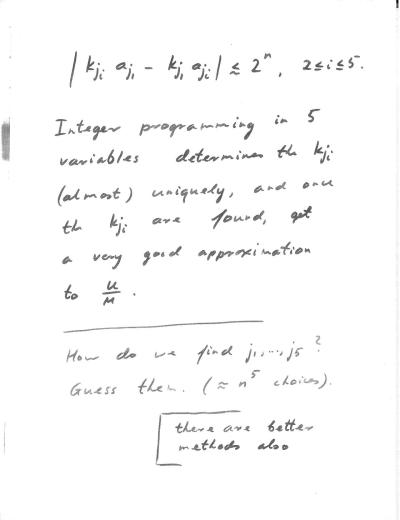 | k_{j_i} a_{j_1} - k_{j_1} a_{j_i} | ≲ 2^n, 2≤i≤5.
Integer programming in 5
variables determines the k_{j_i}
(almost) uniquely, and once
the k_{j_i} are found, get
a very good approximation
to u/M.
How do we find j_1,...,j_5?
Guess them. (≈ n^5 choices).
there are better
methods also